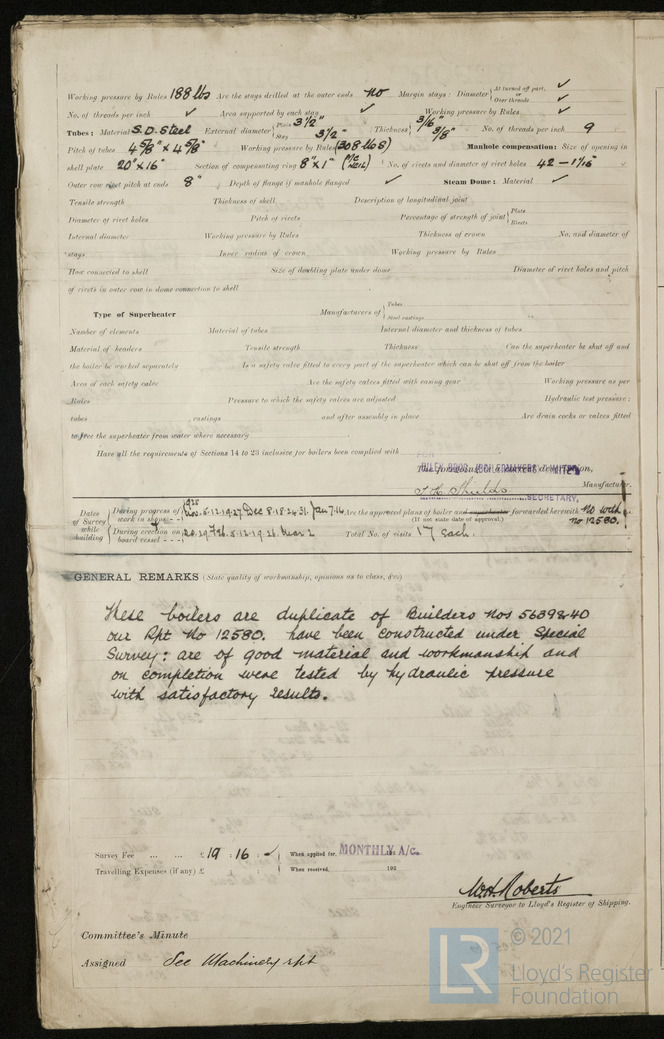 Working pressure by Rules 188 lbs Are the stays drilled at the outer ends no Margin stays: Diameter { At turned off part, or Over threads ✓ ✓
No. of threads per inch ✓ Area supported by each stay ✓ Working pressure by Rules ✓
Tubes: Material S.D. Steel External diameter { Plain 3½" Stay 3½" Thickness { 3/16" 3/8" No. of threads per inch 9
Pitch of tubes 4 5/8" x 4 5/8" Working pressure by Rules (308 lbs) Manhole compensation: Size of opening in
shell plate 20" x 16" Section of compensating ring 8" x 1" No. of rivets and diameter of rivet holes 42 - 1 1/16"
Outer row rivet pitch at ends 8" Depth of flange if manhole flanged ✓ Steam Dome: Material ✓
Tensile strength Thickness of shell Description of longitudinal joint
Diameter of rivet holes Pitch of rivets Percentage of strength of joint { Plate Rivets
Internal diameter Working pressure by Rules Thickness of crown No. and diameter of
stays Inner radius of crown Working pressure by Rules
How connected to shell Size of doubling plate under dome Diameter of rivet holes and pitch
of rivets in outer row in dome connection to shell
Type of Superheater Manufacturers of { Tubes Steel castings
Number of elements Material of tubes Internal diameter and thickness of tubes
Material of headers Tensile strength Thickness Can the superheater be shut off and
the boiler be worked separately Is a safety valve fitted to every part of the superheater which can be shut off from the boiler
Area of each safety valve Are the safety valves fitted with easing gear Working pressure as per
Rules Pressure to which the safety valves are adjusted Hydraulic test pressure:
tubes , castings and after assembly in place Are drain cocks or valves fitted
to free the superheater from water where necessary
Have all the requirements of Sections 14 to 23 inclusive for boilers been complied with
The foregoing is a correct description,
Manufacturer.
SECRETARY,
Dates of Survey while building { During progress of work in shops - - 1928 Nov. 5.12.19.27. Dec 8.18.24.31. Jan 7.16. Are the approved plans of boiler and superheater forwarded herewith No with
(If not state date of approval.) No 12580.
During erection on board vessel - - 20.29. Feb. 5.12.19.26. Mar 2 Total No. of visits 17 each.
GENERAL REMARKS (State quality of workmanship, opinions as to class, &c.)
These boilers are duplicate of Builders Nos 5639&40
our Rpt No 12580. have been constructed under Special
Survey: are of good material and workmanship and
on completion were tested by hydraulic pressure
with satisfactory results.
Survey Fee ... ... £ 19 : 16 : When applied for, MONTHLY A/c. 192
Travelling Expenses (if any) £ : : When received, 192
W.H. Roberts
Engineer Surveyor to Lloyd's Register of Shipping.
Committee's Minute
Assigned See Machinery rpt
LR © 2021
Lloyd's Register
Foundation